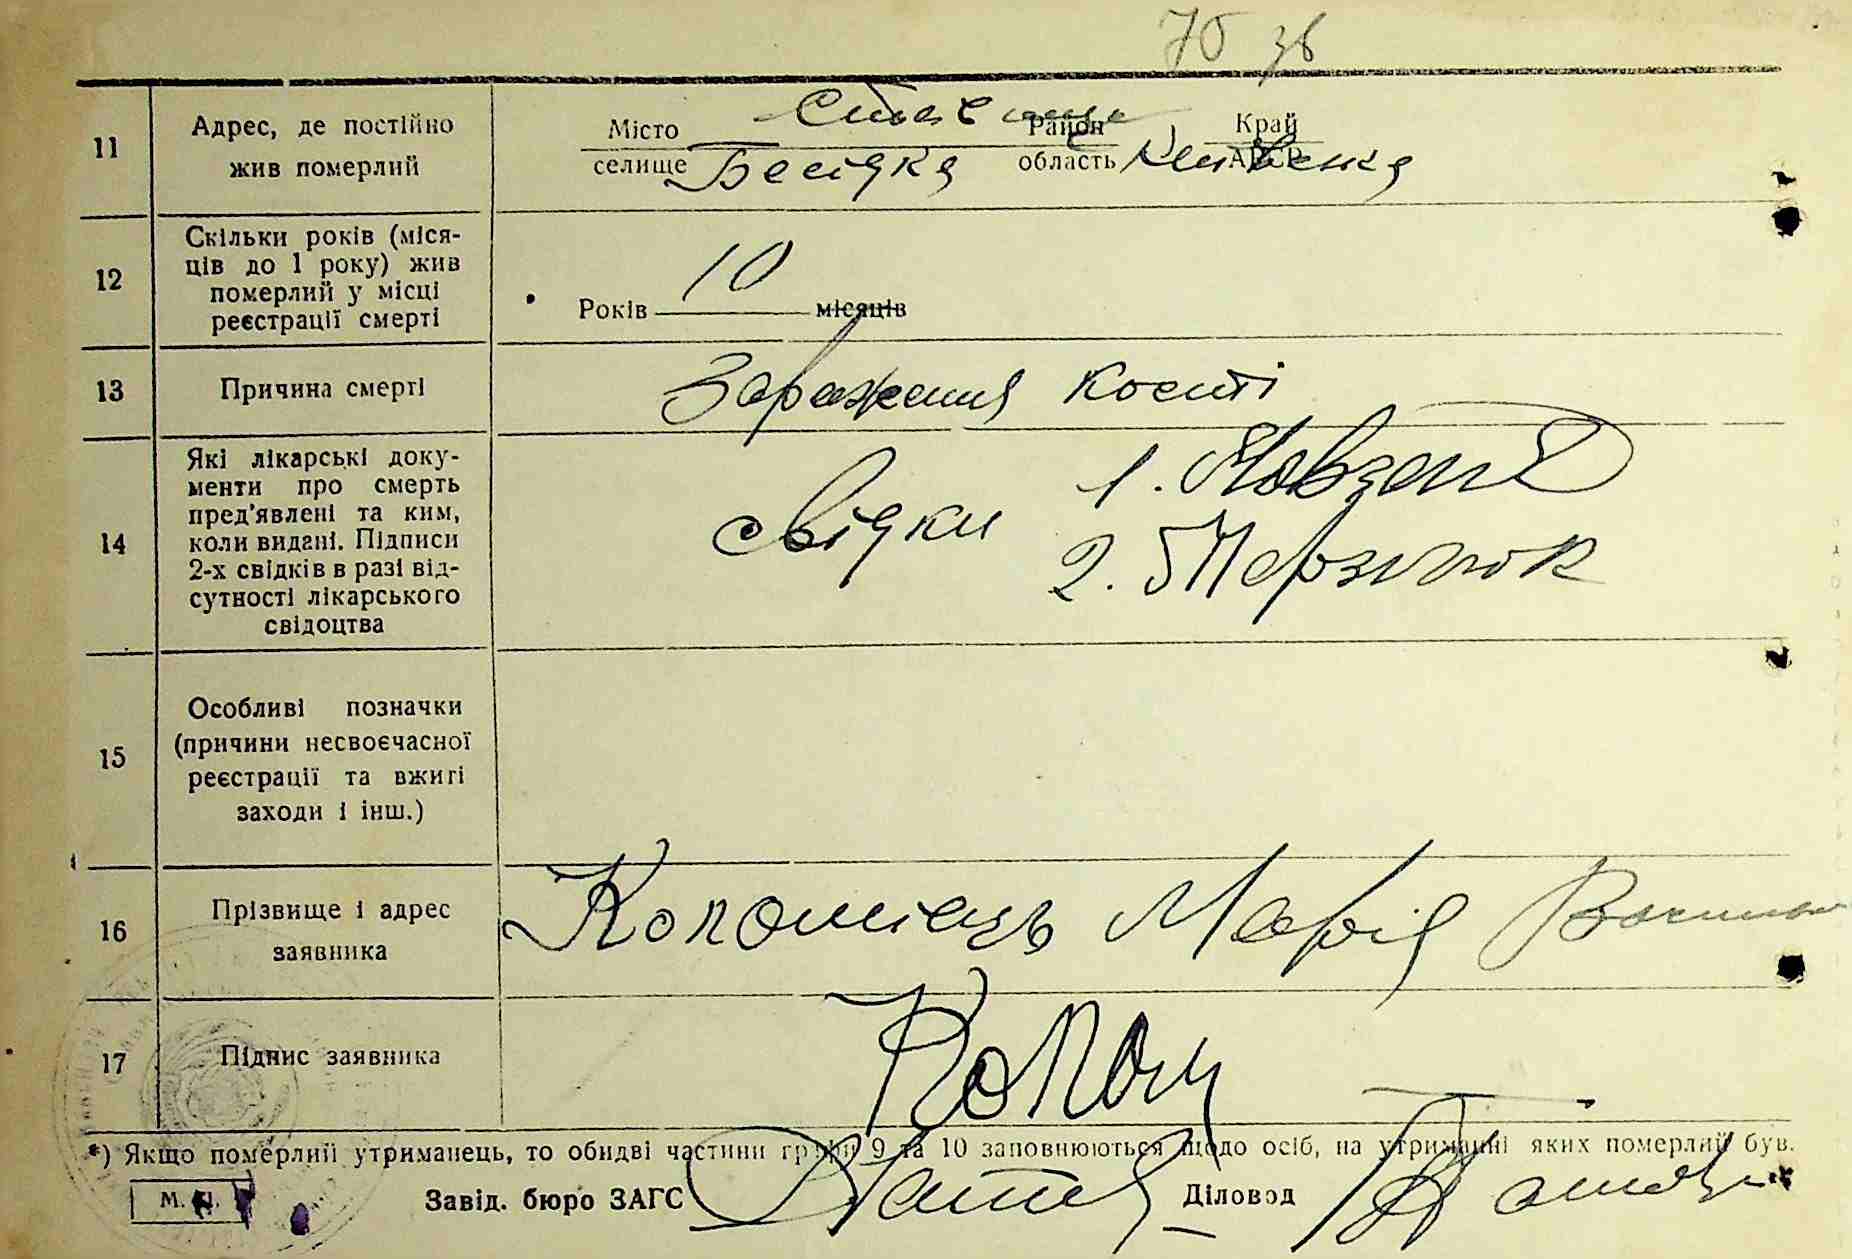 70 зв
11 Адрес, де постійно жив померлий
Місто Ставище Район Край
селище Бесідка область Київська АРСР
12 Скільки років (міся-
ців до 1 року) жив
померлий у місці
реєстрації смерті
Років 10 місяців
13 Причина смерті Зараження кості
14 Які лікарські доку-
менти про смерть
пред'явлені та ким,
коли видані. Підписи
2-х свідків в разі від-
сутності лікарського
свідоцтва
свідки 1.
2.
15 Особливі позначки
(причини несвоєчасної
реєстрації та вжиті
заходи і інш.)
16 Прізвище і адрес
заявника
Коломієць Марія
17 Підпис заявника Колом
*) Якщо померлий утриманець, то обидві частини графи 9 та 10 заповнюються щодо осіб, на утриманні яких померлий був.
М. П. Завід. бюро ЗАГС Діловод